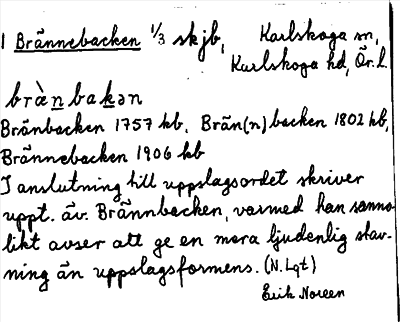 1 Brännebacken 1/3 skjb, Karlskoga sn,
Karlskoga hd, Ör. l.
brä̀nbakən
Bränbacken 1757 kb, Brän(n)backen 1802 kb,
Brännebacken 1906 kb
I anslutning till uppslagsordet skriver
uppt. äv. Brännbacken, varmed han sanno-
likt avser att ge en mera ljudenlig stav-
ning än uppslagsformens. (N. Lqt)
Erik Noreen